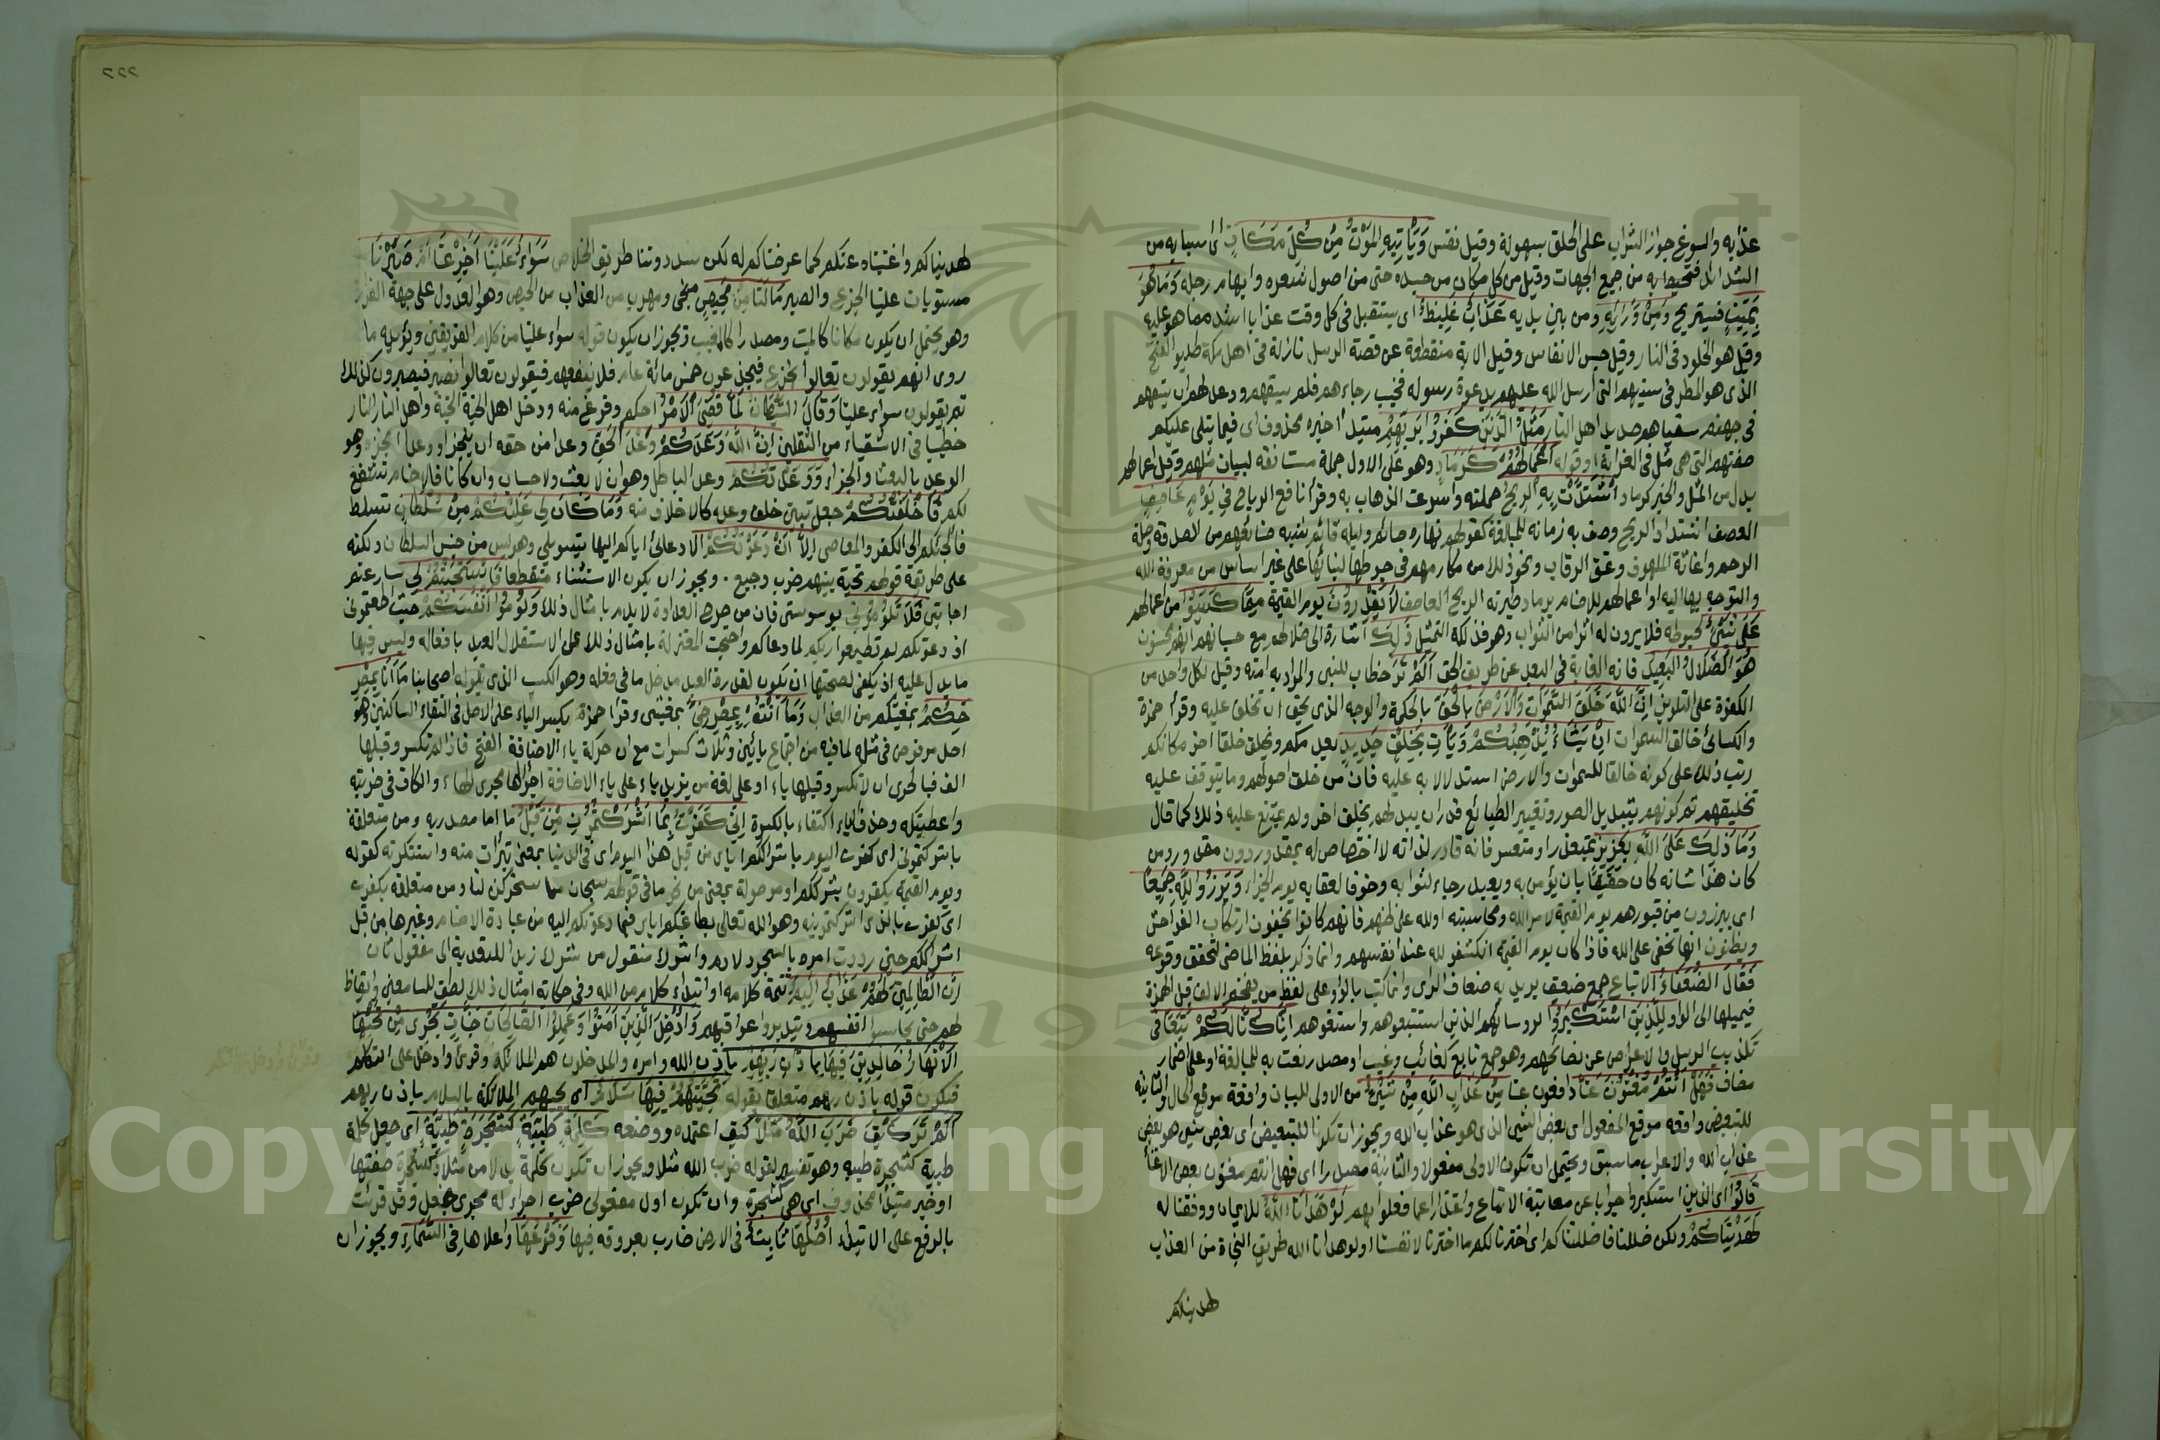 عذابه والسوغ جواز الشراب على الحلق بسهولة وقيل نفس وَيَأْتِيهِ الْمَوْتُ مِنْ كُلِّ مَكَانٍ أى اسبابه من
الشدائد فتحيط به من جميع الجهات وقيل من كل مكان من جسده حتى من اصول شعره وابهام رجله وَمَا هُوَ
بِمَيِّتٍ فيستريح وَمِنْ وَرَائِهِ ومن بين يديه عَذَابٌ غَلِيظٌ اى يستقبل فى كل وقت عذابا اشد مما هو عليه
وقيل هو الخلود فى النار وقيل حبس الانفاس وقيل الاية منقطعة عن قصة الرسل نازلة فى اهل مكة طلبوا الفتح
الذى هو المطر فى سنيهم التى ارسل الله عليهم بدعوة رسوله فخيب رجاءهم فلم يسقهم ووعد لهم ان يسقيهم
فى جهنم سقياهم صديد اهل النار مَثَلُ الَّذِينَ كَفَرُوا بِرَبِّهِمْ مبتدأ خبره محذوف اى فيما يتلى عليكم
صفتهم التى هى مثل فى الغرابة او قوله أَعْمَالُهُمْ كَرَمَادٍ وهو على الاول جملة مستانفة لبيان مثلهم وقيل اعمالهم
بدل من المثل والخبر كرماد اشْتَدَّتْ بِهِ الرِّيحُ حملته واسرعت الذهاب به وقرأ نافع الرياح فِي يَوْمٍ عَاصِفٍ
العصف اشتداد الريح وصف به زمانه للمبالغة كقولهم نهاره صائم وليله قائم شبه صنائعهم من الصدقة وصلة
الرحم واغاثة الملهوف وعتق الرقاب ونحو ذلك من مكارمهم فى حبوطها لبنائها على غير اساس من معرفة الله
والتوجه بها اليه او اعمالهم للاصنام برماد طيرته الريح العاصف لَا يَقْدِرُونَ يوم القيمة مِمَّا كَسَبُوا من اعمالهم
عَلَى شَيْءٍ لحبوطه فلا يرون له اثرا من الثواب وهو فذلكة التمثيل ذَلِكَ اشارة الى ضلالهم مع حسبانهم انهم محسنون
هُوَ الضَّلَالُ الْبَعِيدُ فانه الغاية فى البعد عن طريق الحق أَلَمْ تَرَ خطاب للنبى والمراد به امته وقيل لكل واحد من
الكفرة على التلوين أَنَّ اللَّهَ خَلَقَ السَّمَوَاتِ وَالْأَرْضَ بِالْحَقِّ بالحكمة والوجه الذى يحق ان تخلق عليه وقرأ حمزة
والكسائى خالق السموات إِنْ يَشَأْ يُذْهِبْكُمْ وَيَأْتِ بِخَلْقٍ جَدِيدٍ يعدمكم ويخلق خلقا اخر مكانكم
رتب ذلك على كونه خالقا للسموات والارض استدلالا به عليه فان من خلق اصولهم وما يتوقف عليه
تخليقهم ثم كونهم بتبديل الصور وتغيير الطبائع قدر ان يبدلهم بخلق اخر ولم يمتنع عليه ذلك كما قال
وَمَا ذَلِكَ عَلَى اللَّهِ بِعَزِيزٍ بمتعذر او متعسر فانه قادر لذاته لا اختصاص له بمقدور دون مقدور ومن
كان هذا شانه كان حقيقا بان يؤمن به ويعبد رجاء لثوابه وخوفا لعقابه يوم الجزاء وَبَرَزُوا لِلَّهِ جَمِيعًا
اى يبرزون من قبورهم يوم القيمة لامر الله ومحاسبته او لله على ظنهم فانهم كانوا يخفون ارتكاب الفواحش
ويظنون انها تخفى على الله فاذا كان يوم القيمة انكشفوا لله عند انفسهم وانما ذكر بلفظ الماضى لتحقق وقوعه
فَقَالَ الضُّعَفَاءُ الاتباع جمع ضعيف يريد به ضعاف الرأى وانما كتب بالواو على لفظ من يفخم الالف قبل الهمزة
فيميلها الى الواو لِلَّذِينَ اسْتَكْبَرُوا لرؤسائهم الذين استتبعوهم واستغووهم إِنَّا كُنَّا لَكُمْ تَبَعًا فى
تكذيب الرسل والاعراض عن نصائحهم وهو جمع تابع كغائب وغيب او مصدر نعت به للمبالغة او على اضمار
مضاف فَهَلْ أَنْتُمْ مُغْنُونَ عَنَّا دافعون عنا مِنْ عَذَابِ اللَّهِ مِنْ شَيْءٍ من الاولى للبيان واقعة موقع الحال والثانية
للتبعيض واقعة موقع المفعول اى بعض الشئ الذى هو عذاب الله ويجوز ان تكونا للتبعيض اى بعض شئ هو بعض
عذاب الله والاعراب ما سبق ويحتمل ان تكون الاولى مفعولا والثانية مصدرا اى فهل انتم مغنون بعض الاغنا
قَالُوا اى الذين استكبروا جوابا عن معاتبة الاتباع واعتذارا عما فعلوا بهم لَوْ هَدَانَا اللَّهُ للايمان ووفقنا له
لَهَدَيْنَاكُمْ ولكن ضللنا فاضللناكم اى اخترنا لكم ما اخترنا لانفسنا او لو هدانا الله طريق النجاة من العذاب
لهديناكم
٢٢٢
لهديناكم واغنيناه عنكم كما عرضناكم له لكن سد دوننا طريق الخلاص سَوَاءٌ عَلَيْنَا أَجَزِعْنَا أَمْ صَبَرْنَا
مستويان علينا الجزع والصبر مَا لَنَا مِنْ مَحِيصٍ منجى ومهرب من العذاب من الحيص وهو العدول على جهة الفرار
وهو يحتمل ان يكون مكانا كالمبيت ومصدرا كالمغيب ويجوز ان يكون قوله سواء علينا من كلام الفريقين ويؤيده ما
روى انهم يقولون تعالوا نجزع فيجزعون خمس مائة عام فلا ينفعهم فيقولون تعالوا نصبر فيصبرون كذلك
ثم يقولون سواء علينا وَقَالَ الشَّيْطَانُ لَمَّا قُضِيَ الْأَمْرُ احكم وفرغ منه ودخل اهل الجنة الجنة واهل النار النار
خطيبا فى الاشقياء من الثقلين إِنَّ اللَّهَ وَعَدَكُمْ وَعْدَ الْحَقِّ وعدا من حقه ان ينجز او وعدا انجزه وهو
الوعد بالبعث والجزاء وَوَعَدْتُكُمْ وعد الباطل وهو ان لا بعث ولا حساب وان كانا فالاصنام تشفع
لكم فَأَخْلَفْتُكُمْ جعل تبين خلف وعده كالاخلاف منه وَمَا كَانَ لِي عَلَيْكُمْ مِنْ سُلْطَانٍ تسلط
فالجئكم الى الكفر والمعاصى إِلَّا أَنْ دَعَوْتُكُمْ الا دعائى اياكم اليها بتسويلى وهو ليس من جنس السلطان ولكنه
على طريقة قولهم تحية بينهم ضرب وجيع . ويجوز ان يكون الاستثناء منقطعا فَاسْتَجَبْتُمْ لِي اسرعتم
اجابتى فَلَا تَلُومُونِي بوسوستى فان من صرح العداوة لا يلام بامثال ذلك وَلُومُوا أَنْفُسَكُمْ حيث اطعتمونى
اذ دعوتكم لم تطيعوا ربكم لما دعاكم واحتجت المعتزلة بامثال ذلك على استقلال العبد بافعاله وليس فيها
ما يدل عليه اذ يكفى لصحتها ان يكون لقدرة العبد مدخل ما فى فعله وهو الكسب الذى يقوله اصحابنا مَا أَنَا بِمُصْرِ
خِكُمْ بمغيثكم من العذاب وَمَا أَنْتُمْ بِمُصْرِخِيَّ بمغيثى وقرأ حمزة بكسر الياء على الاصل فى التقاء الساكنين وهو
اصل مرفوض فى مثله لما فيه من اجتماع يائين وثلاث كسرات مع ان حركة ياء الاضافة الفتح فاذا لم تكسر وقبلها
الف فبالحرى ان لا تكسر وقبلها ياء او على لغة من يزيد ياء على ياء الاضافة اجراء لها مجرى الهاء والكاف فى ضربته
واعطيتكه وحذف الياء اكتفاء بالكسرة إِنِّي كَفَرْتُ بِمَا أَشْرَكْتُمُونِ مِنْ قَبْلُ ما اما مصدرية ومن متعلقة
باشركتمونى اى كفرت اليوم باشراككم اياى من قبل هذا اليوم اى فى الدنيا بمعنى تبرأت منه واستنكرته كقوله
ويوم القيمة يكفرون بشرككم او موصولة بمعنى من نحو ما فى قولهم سبحان ما سخركن لنا ومن متعلقة بكفرت
اى كفرت بالذى اشركتمونيه وهو الله تعالى بطاعتكم اياى فيما دعوتكم اليه من عبادة الاصنام وغيرها من قبل
اشراككم حين رددت امره بالسجود لادم واشرك منقول من شرك زيدا للتعدية الى مفعول ثان
إِنَّ الظَّالِمِينَ لَهُمْ عَذَابٌ أَلِيمٌ تتمة كلامه او ابتداء كلام من الله وفى حكاية امثال ذلك لطف للسامعين وايقاظ
لهم حتى يحاسبوا انفسهم ويتدبروا عواقبهم وَأُدْخِلَ الَّذِينَ آمَنُوا وَعَمِلُوا الصَّالِحَاتِ جَنَّاتٍ تَجْرِي مِنْ تَحْتِهَا
الْأَنْهَارُ خَالِدِينَ فِيهَا بِإِذْنِ رَبِّهِمْ باذن الله وامره والمدخلون هم الملائكة وقرئ وادخل على التكلم
فيكون قوله باذن ربهم متعلقا بقوله تَحِيَّتُهُمْ فِيهَا سَلَامٌ اى يحييهم الملائكة بالسلام باذن ربهم
أَلَمْ تَرَ كَيْفَ ضَرَبَ اللَّهُ مَثَلًا كيف اعتمده ووضعه كَلِمَةً طَيِّبَةً كَشَجَرَةٍ طَيِّبَةٍ اى جعل كلمة
طيبة كشجرة طيبة وهو تفسير لقوله ضرب الله مثلا ويجوز ان تكون كلمة بدلا من مثلا وكشجرة صفتها
او خبر مبتدأ محذوف اى هى كشجرة وان تكون اول مفعولى ضرب اجراء له مجرى جعل وقد قرئت
بالرفع على الابتداء أَصْلُهَا ثَابِتٌ فى الارض ضارب بعروقه فيها وَفَرْعُهَا واعلاها فِي السَّمَاءِ ويجوز ان
Copyright © King Saud University
1957